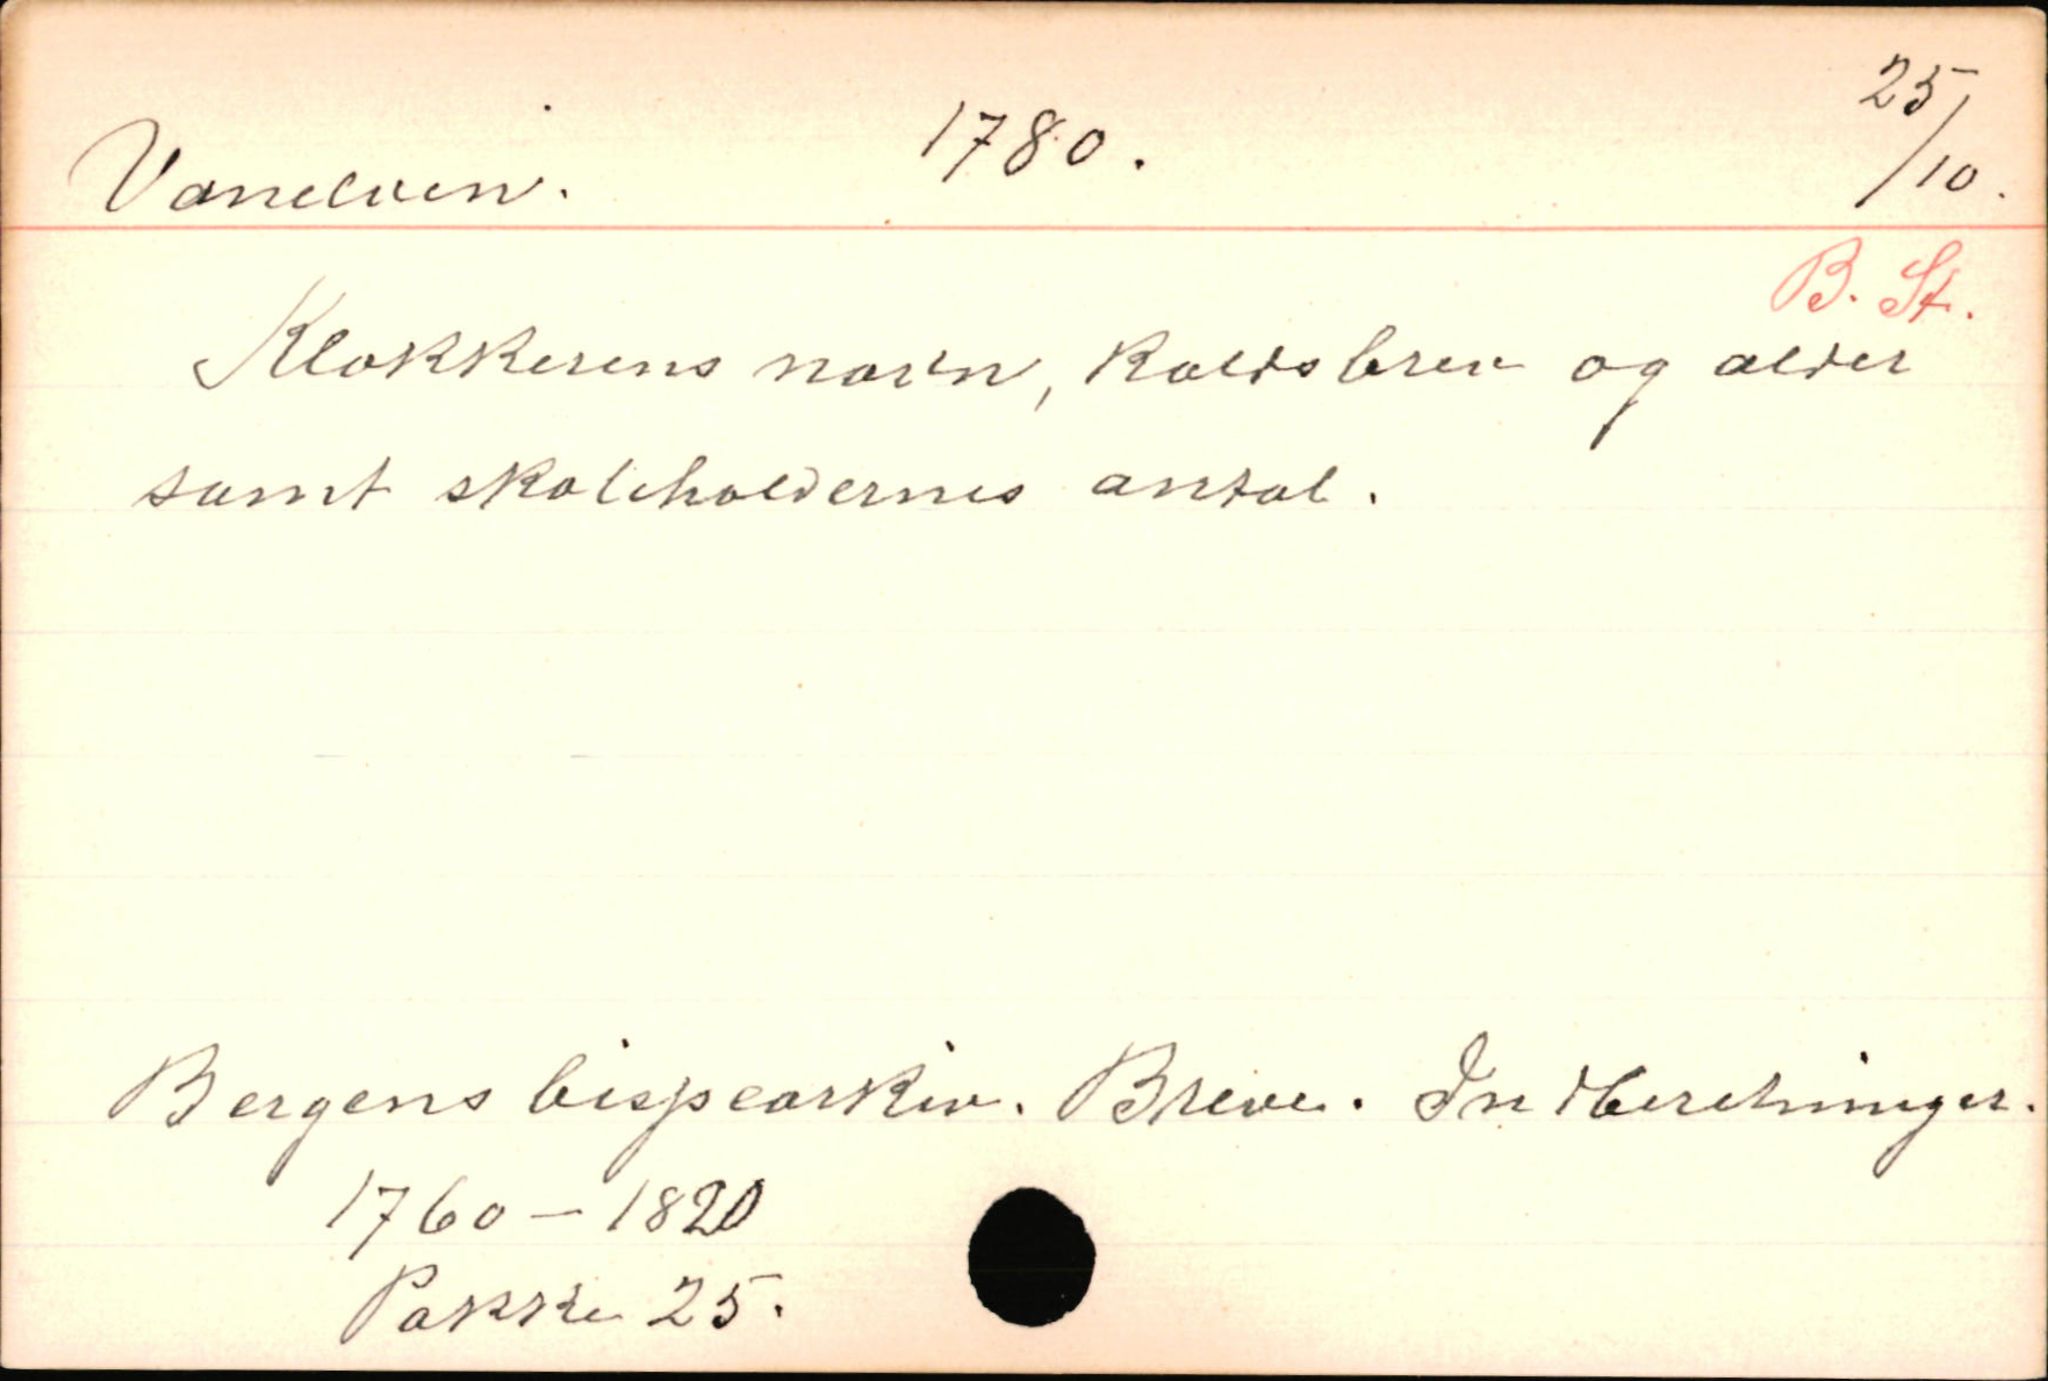 Vanelven. 1780. 25/10.
B. St.
Klokkerens navn, kaldsbrev og alder
samt skoleholdernes antal.
Bergens bispearkiv. Breve. Indberetninger.
1760–1820
Pakke 25.